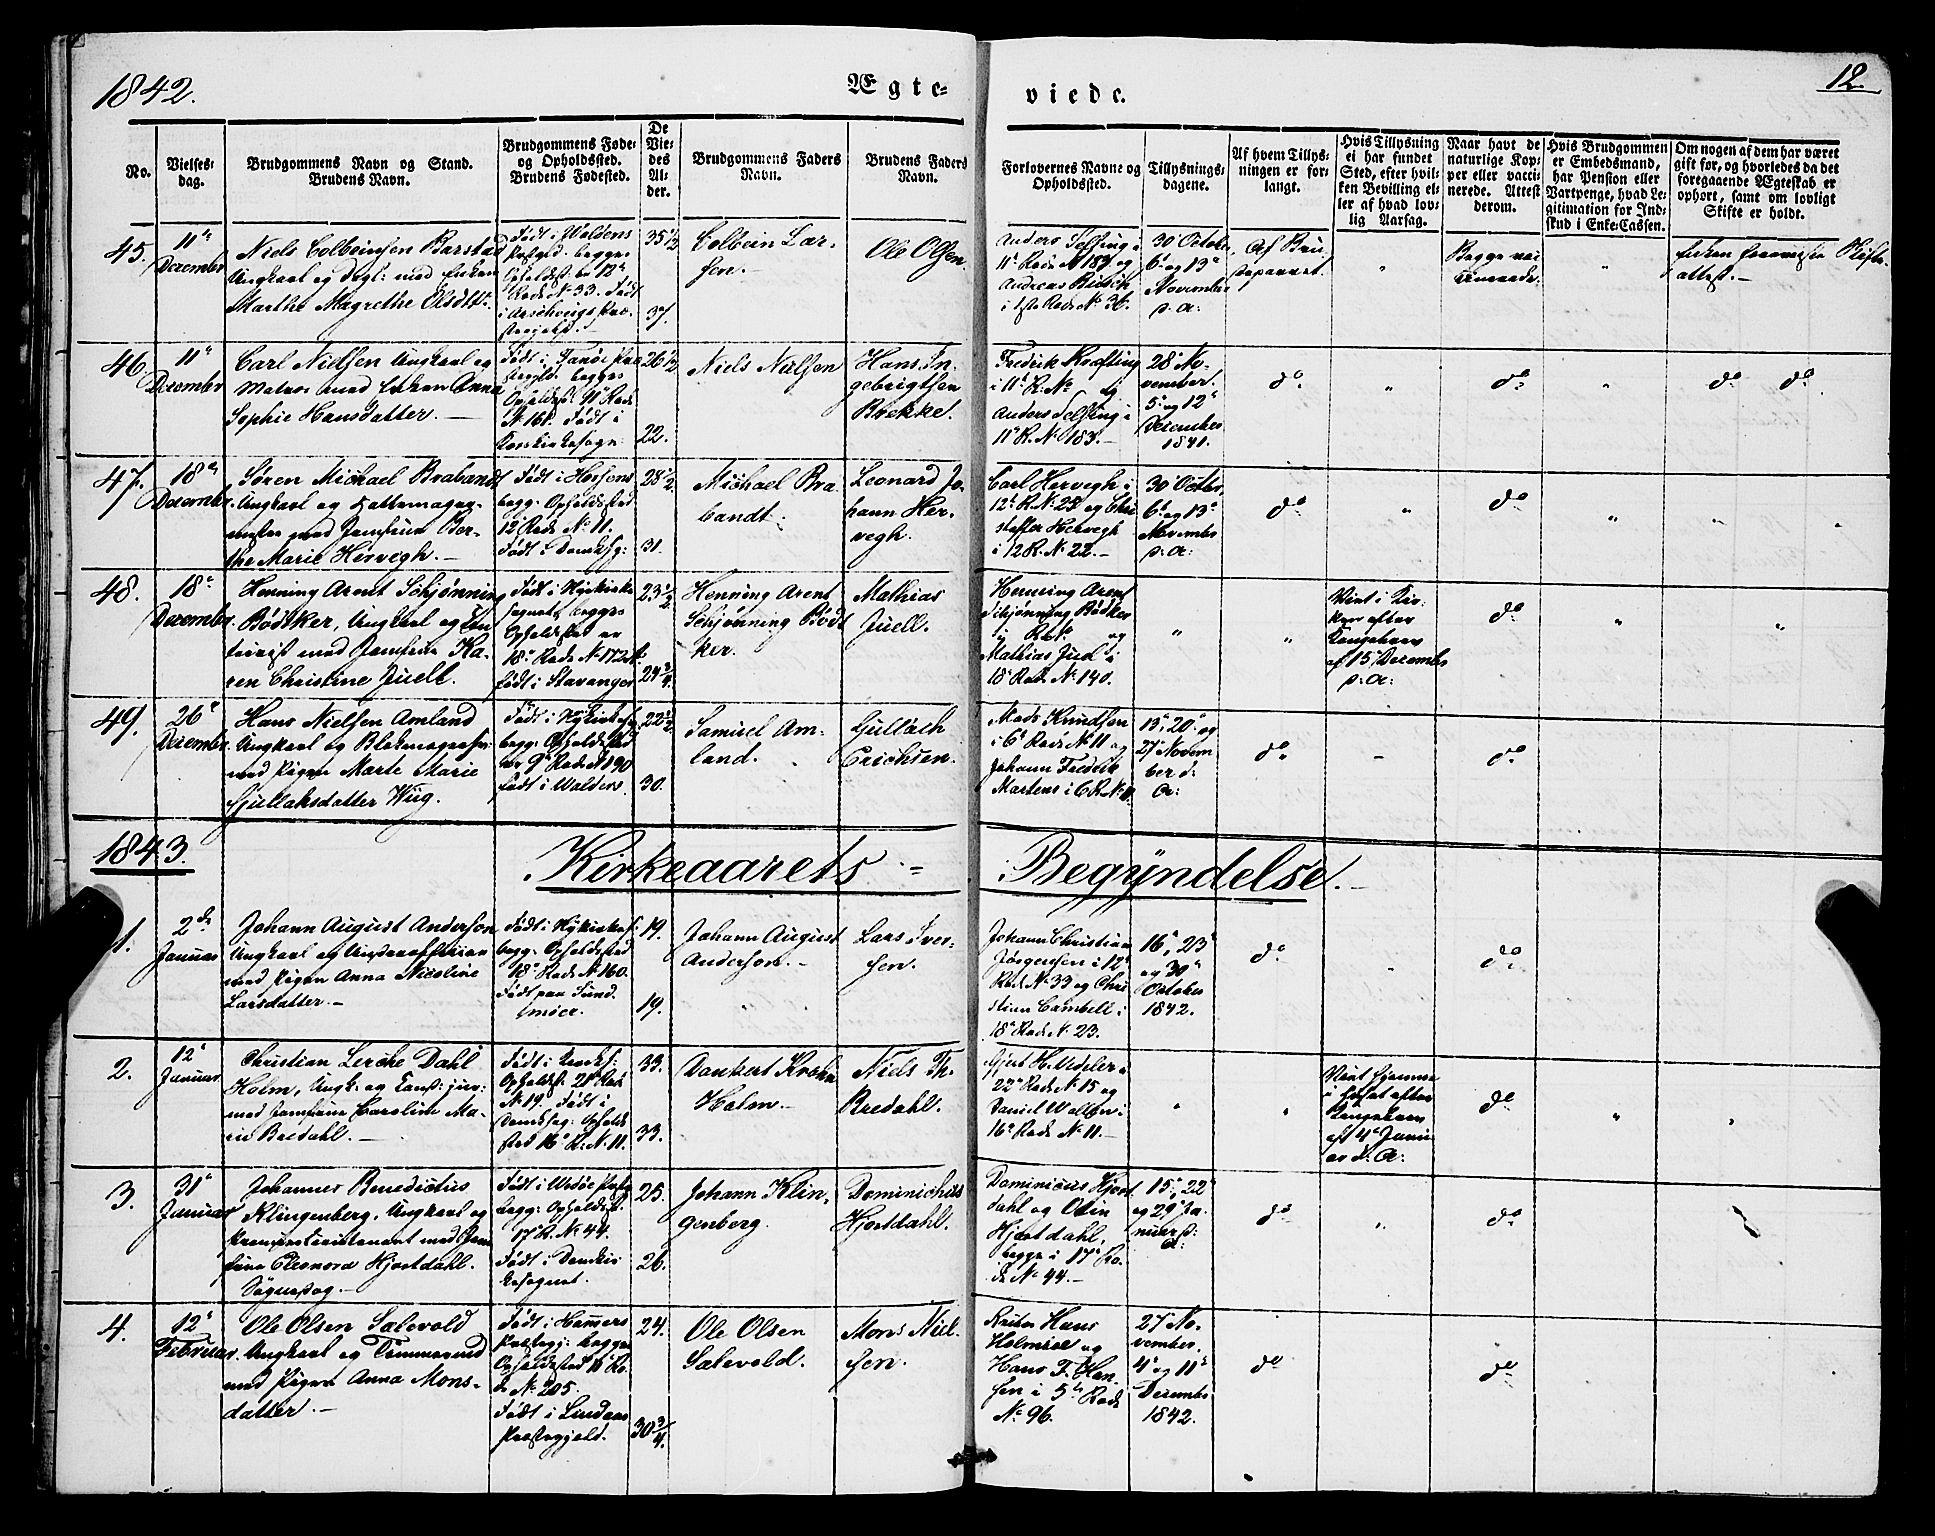 1842.
Ægte-
viede.
12.
No.
Vielses-
dag.
Brudgommens Navn og Stand.
Brudens Navn.
Brudgommens Føde-
og Opholdssted.
Brudens Fødested.
De
Vie-
des
Al-
der.
Brudgommens Faders
Navn.
Brudens Faders
Navn.
Forlovernes Navne og
Opholdssted.
Tillysnings-
dagene.
Af hvem Tillys-
ningen er for-
langt.
Hvis Tillysning
ei har fundet
Sted, efter hvil-
ken Bevilling el-
ler af hvad lov-
lig Aarsag.
Naar havt de
naturlige Kop-
per eller vacci-
nerede. Attest
derom.
Hvis Brudgommen
er Embedsmand,
har Pension eller
Vartpenge, hvad Le-
gitimation for Ind-
skud i Enke-Cassen.
Om nogen af dem har været
gift før, og hvorledes da det
foregaaende Ægteskab er
ophørt, samt om lovligt
Skifte er holdt.
45.
11te
Dezember
Niels Colbeinsen Barstad
Ungkarl og med Enken
Marthe Magrethe Olsdttr
Født i Waldens
Præstgjeld begges
Opholdsst. er 13de
Rode N. 33. Født
35 1/2
37.
Colbein Lar-
sen.
Ole Olsen.
Anders Selsing i
11te Rode N 183 og
Andreas
i 1ste Rode N. 36.
30 October
6te og 13de
November
p. a:
Af Bru
deparret.
"
Begge vac
cinerede.
"
Enken foreviste Skifte-
attest.
46.
11te
Dezember
Carl Nielsen Ungkarl og
Matros med Enken Anna
Sophie Hansdatter.
Født i Fanøe
begges
Opholdsst. 11 Rode
N. 161. Født i
Korskirkesogn.
26 1/2
22.
Niels Nielsen
Hans In-
gebrigtsen
Brekke.
Fredrik Krafting
i 11te R. No og
Anders Selsing i
11te R. N. 183.
28 No-
vember.
5te og 12te
Dezember
1841.
do
"
do
"
do do
47.
18de
Dezember.
Søren Michael Brabandt
Ungkarl og Hattemager-
mester med Jomfrue Ber-
the Marie Hervegh.
Født i Horsens
begg: Opholdssted
12 Rode N. 11.
Født i Domksg:
28 1/2
31.
Michael Bra
bandt.
Leonard Jo-
hann Her-
vegh.
Carl Hervegh i
12te R. N. 22 og Chri
stoffer Hervegh
i 12 R. N. 22.
30 Octbr.
6te og 13de
November
p: a:
do
"
do
"
"
48.
18de
Dezember.
Henning Arent Schjønning
Bødtker, Ungkarl og
med Jomfrue Ka-
ren Christine Juell.
Født i Nykirke
sognet begges
Opholdssted er
18de Rode N. 173
født i Stavanger
23 1/2
24 3/4
Henning Arent
Schjønning Bødt
ker.
Mathias
Juell.
Henning Arent
Schjønning Bødtker
i Rode og
Mathias Juell i
18de Rode N. 140.
"
"
Viet i Kir-
ken efter
Kongebrev
af 15 Decembr
p. a:
do
"
"
49.
26de
Dezembr.
Hans Nielsen Amland
Ungkarl og Blokmagersv.
med Pigen Marte Marie
Gjullaksdatter Wüg.
Født i Nykirkes.
begg: Opholdssted
er 9de Rode N 190
født i Waldens.
22 1/2
30.
Samuel Am-
land.
Gjullach
Erichsen.
Mads Knudsen
i 6te Rode N 11 og
Johann Fredrik
Martens i 6 R. N. 11.
13de, 20de og
27de Novem
ber d:
A:
do
–
do
1843.
Kirkeaarets
Begyndelse.
1.
2den
Januar
Johann August Anderson
Ungkarl og Underofficier
med Pigen Anna Nicoline
Larsdatter.
Født i Nykirkes.
begg: Opholdssted
18de Rode N. 160.
Født paa Sund-
møer.
19.
19.
Johann August
Anderson.
Lars Iver-
sen.
Johann Christian
Jørgensen i 12te
Rod N. 33 og Chri
stian Cambell i
18de Rode N. 23.
16de, 23de
og 30te
October
1842.
do
"
do
2.
12te
Januar
Christian Lerche Dahl
Holm, Ungk: og Cand: jur:
med Jomfrue Caroline Ma-
rie Bredahl.
Født i
Opholdsst: 21de Rode
N. 19. Født i
Domksg: Ophold
sted 16de R. N. 11.
33.
33.
Dankert Krohn
Holm.
Niels Th.
Bredahl.
Gjert H. Wedeler i
22de Rode N. 15 og
Daniel Walter i
16de Rode N. 11.
"
"
Viet hjemme
i huset efter
Kongebrev
af 4de Janu
ar d: A:
do
"
"
3.
31te
Januar
Johannes Benedictus
Klingenberg, Ungkarl og
Premierlieutenant med Jom
frue Eleonora Hjortdahl.
Født i Wedøe
begg: Opholdsst.
17de R. N. 44.
Født i Domkir
kesognet.
25.
26.
Johann Klin,
genberg.
Dominichus
Hjortdahl.
Dominicus Hjort
dahl og Odin
Hjortdahl,
begge i 17de Ro-
de N. 44.
15de, 22de
og 29de Ja-
nuar d:
A:
do
"
do
4.
12te
Februar.
Ole Olsen Sælevold
Ungkarl og Tømmermd
med Pigen Anna Mons-
datter.
Født i Hammers
Præstegj: begges
Opholdssted 11te Ro-
de N. 205.
Født i Lindaas
Præstegjeld.
24.
30 3/4.
Ole Olsen
Sælevold.
Mons Niel-
sen.
Hans
Holmsæl og
Hans F. Han-
sen i 5te Rode
No. 96.
27de No-
vember.
4de og 11te
Decembr
1842.
do
do